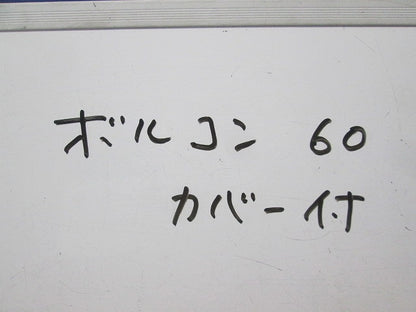 ボルコン 60
カバー付